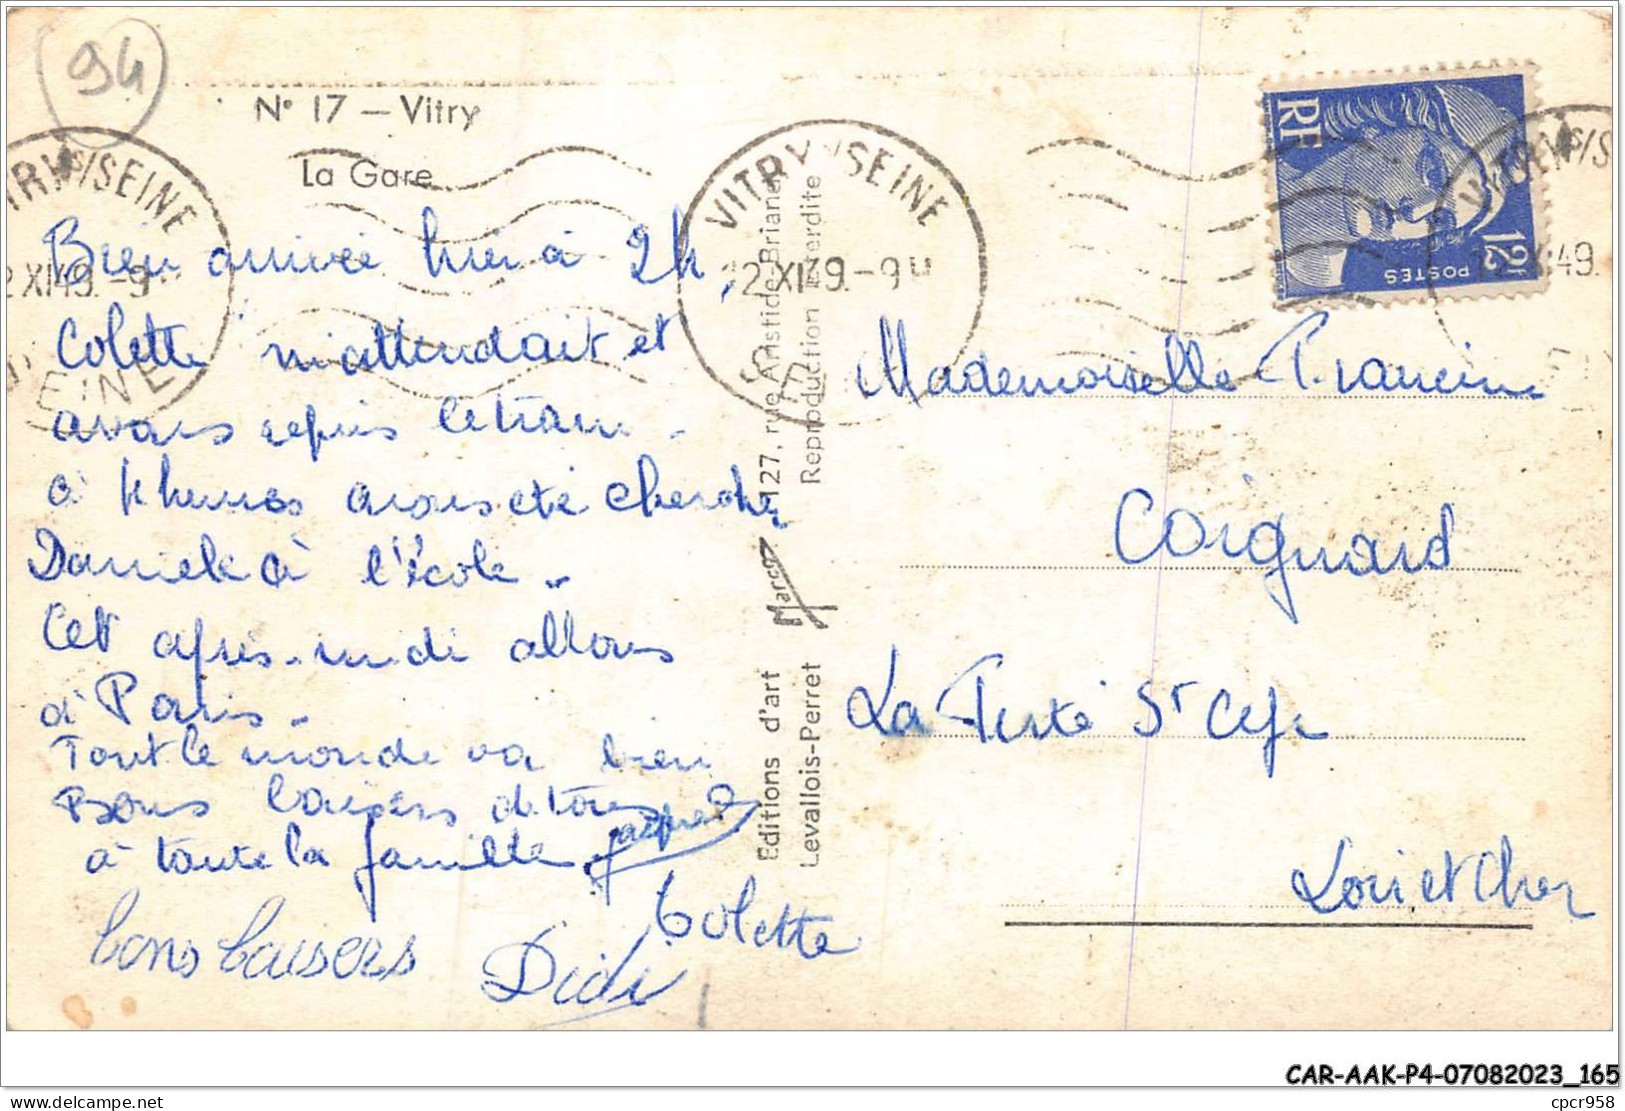 94
N° 17 — Vitry
La Gare
VITRY S/SEINE
12 XI 49. - 9H
SEINE
RF
12F
POSTES
Bien arrivée hier à 2h,
Colette m'attendait et
avons repris le train -
à 4 heures avons été cherché
Danièle à l'école -
Cet après-midi allons
à Paris -
Tout le monde va bien
Bons baisers de tous
à toute la famille
Colette
bons baisers Didi
Editions d'art Marco 127, rue Aristide-Briand
Levallois-Perret Reproduction interdite
Mademoiselle Francine
Coignard
La Ferté St Cyr
Loir et Cher
CAR-AAK-P4-07082023_165
delcampe.net
cpcr958